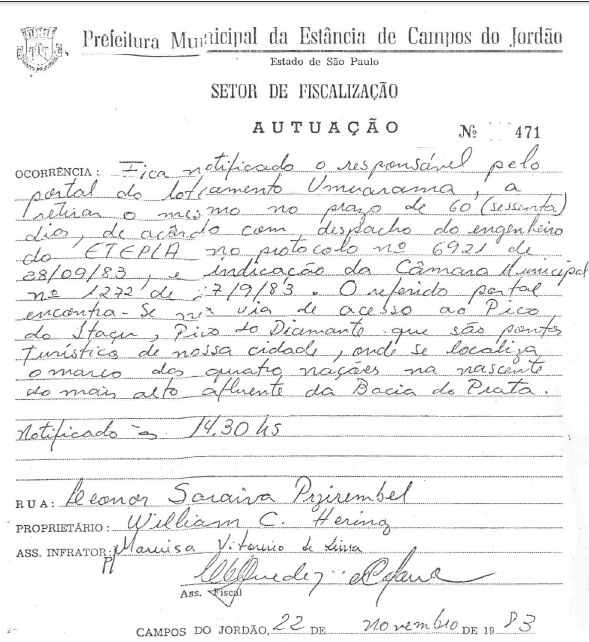 Prefeitura Municipal da Estância de Campos do Jordão
Estado de São Paulo
SETOR DE FISCALIZAÇÃO
AUTUAÇÃO Nº 471
OCORRÊNCIA: Fica notificado o responsável pelo
portal do loteamento Umuarama, a
retirar o mesmo no prazo de 60 (sessenta)
dias, de acôrdo com despacho do engenheiro
do ETEPLA no protocolo nº 6921 de
28/09/83, e indicação da Câmara Municipal
nº 1272 de 27/9/83. O referido portal
encontra-se na via de acesso ao Pico
do Itagu, Pico do Diamante que são pontos
turístico de nossa cidade, onde se localiza
o marco das quatro nações na nascente
do mais alto afluente da Bacia do Prata.
Notificado às 14,30 hs
RUA: Leonor Soraiva Pzirembel
PROPRIETÁRIO: William C. Hering
ASS. INFRATOR: Marisa Vitorino de Lima
Ass. Fiscal
CAMPOS DO JORDÃO, 22 DE novembro DE 1983